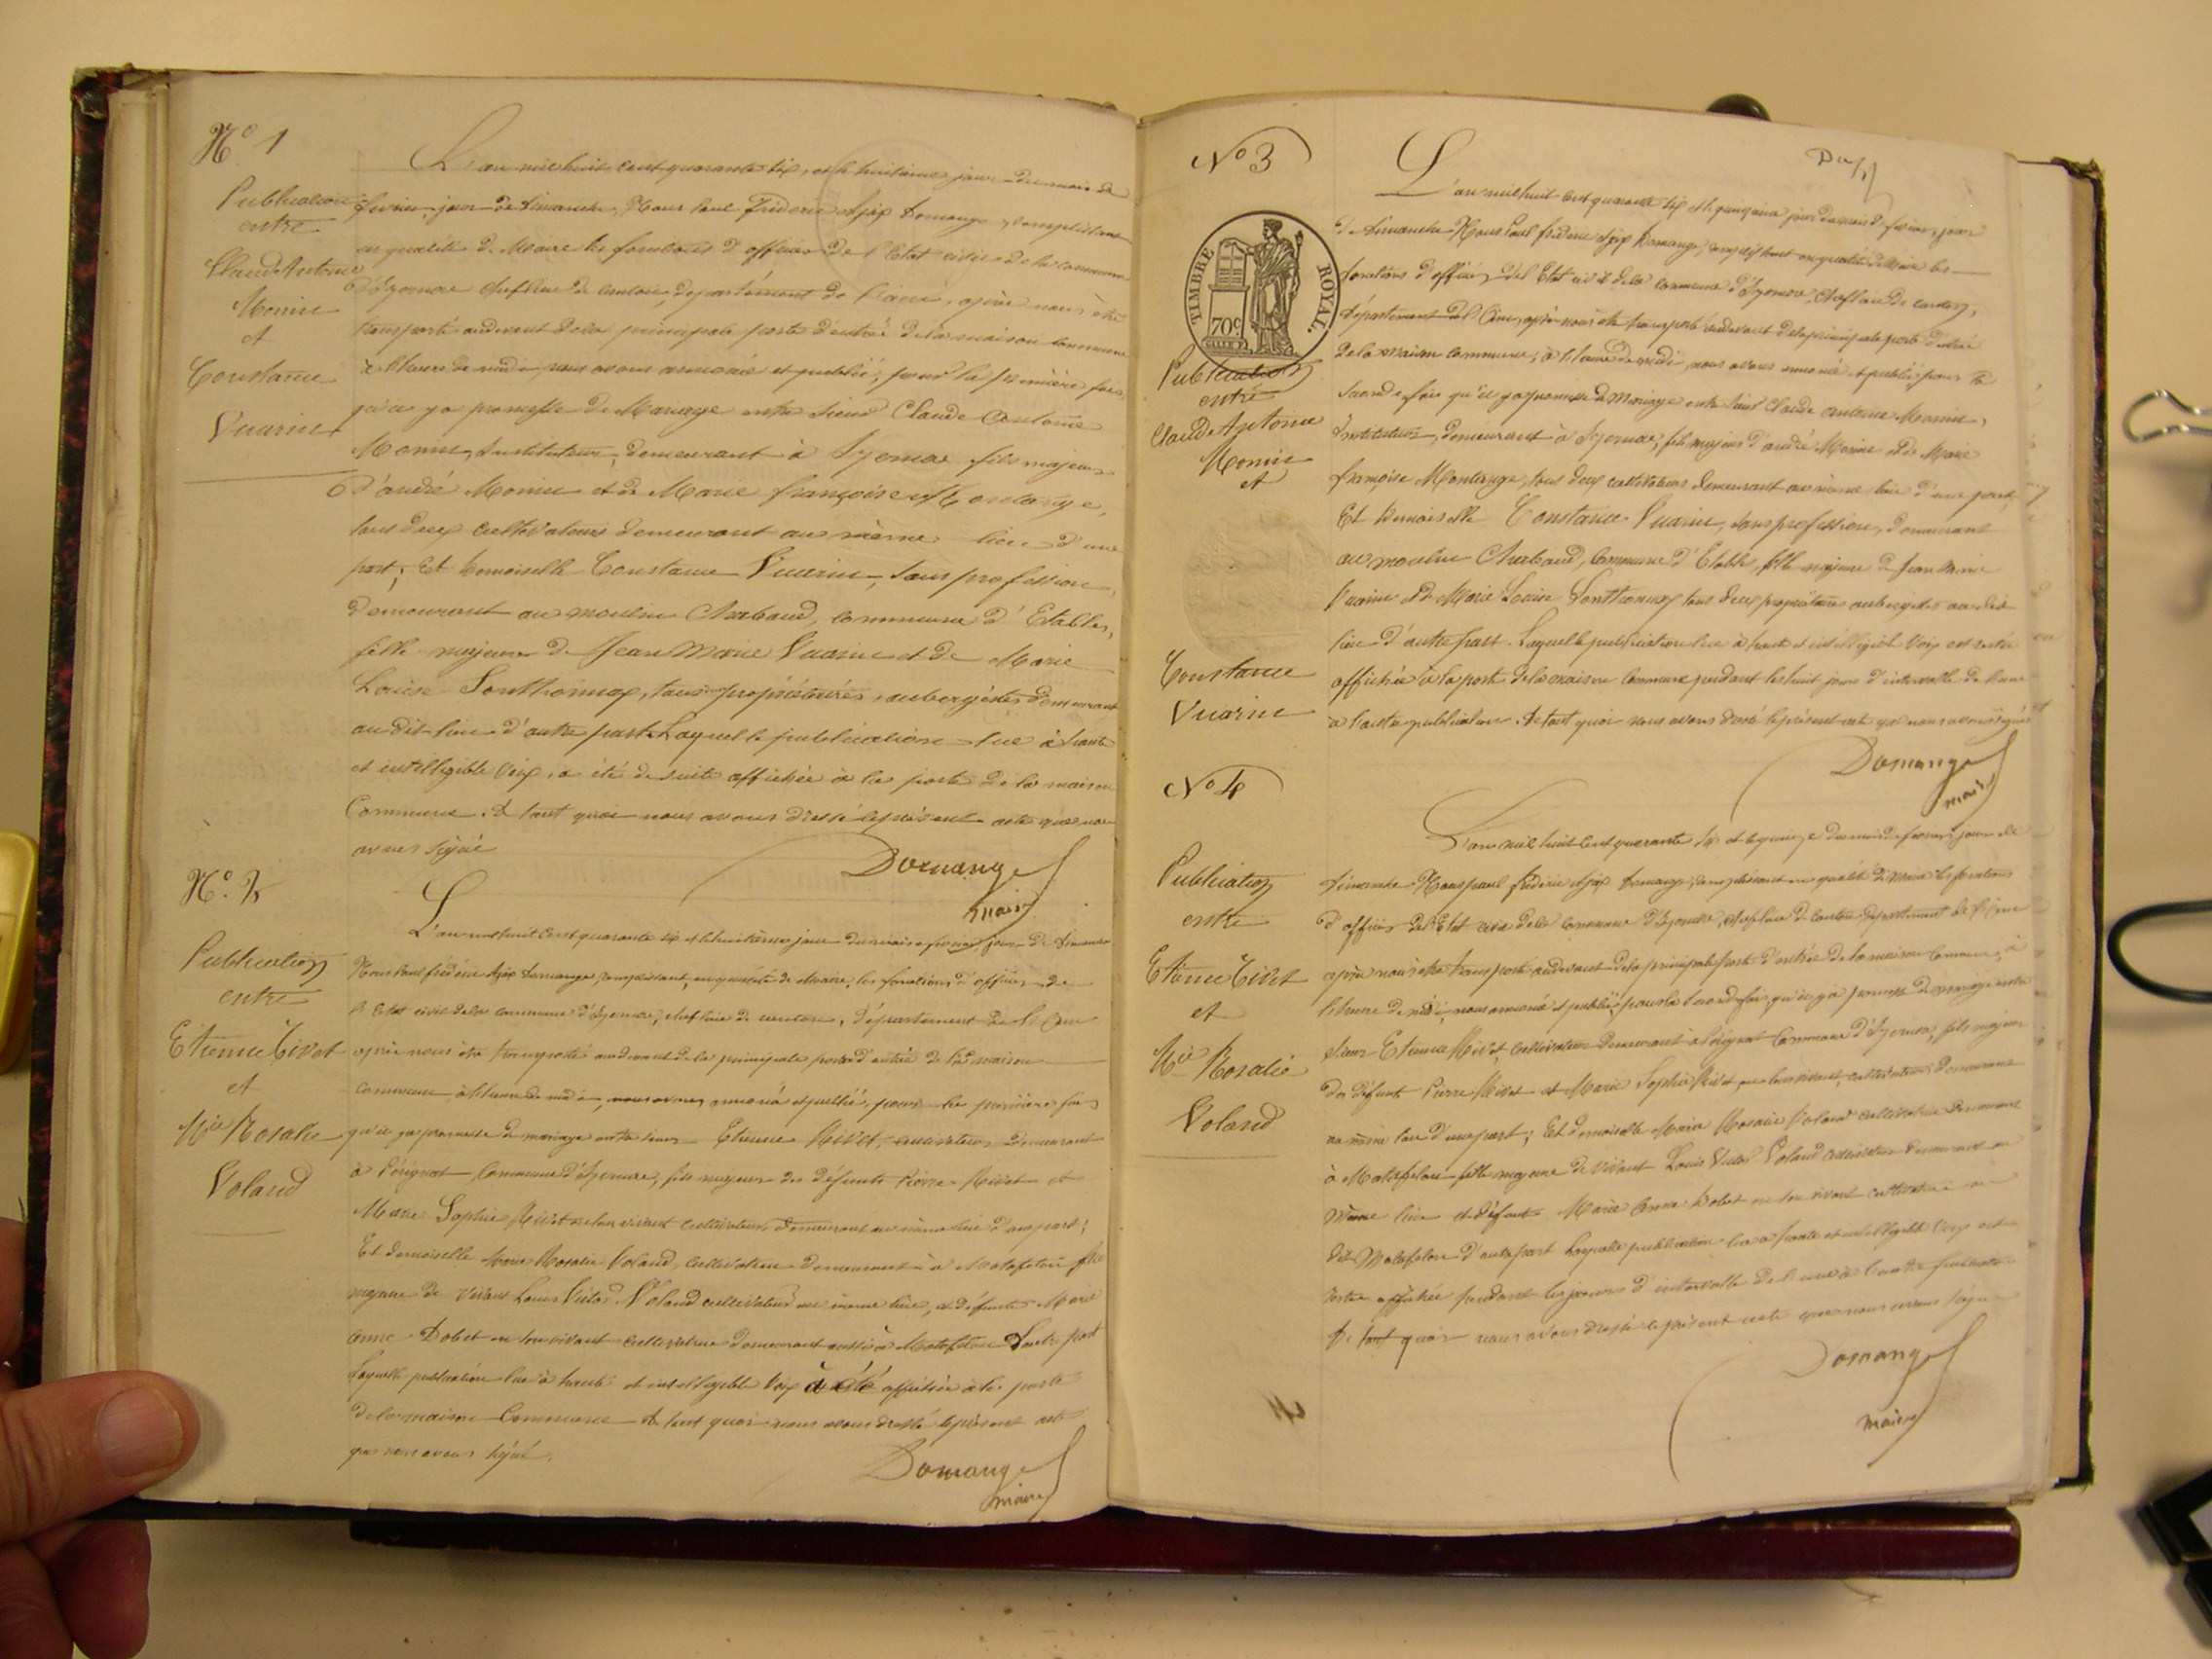 N.º 1
Publication
entre
Claude Antoine
Monin
et
Constance
Vuarin
L'an mil huit cent quarante six, et le huitième jour du mois de
février, jour de dimanche, Nous Paul Frédéric Ajax Domange, remplissant
en qualité de Maire les fonctions d'officier de l'Etat civil de la commune
d'Izernore chef lieu de canton, département de l'ain, après nous être
transporté au devant de la principale porte d'entrée de la maison commune
à l'heure de midi nous avons annoncé et publié, pour la première fois
qu'il y a promesse de Mariage entre sieur Claude Antoine
Monin, Instituteur, demeurant à Izernore fils majeur
d'andré Monin et de Marie françoise Montange,
tous deux cultivateurs demeurant au même lieu d'une
part; Et Demoiselle Constance Vuarin, sans profession,
demeurant au moulin Charbaud, commune d'Etables,
fille majeure de Jean Marie Vuarin et de Marie
Louise Sonthonnax, tous propriétaires, aubergistes demeurant
au dit lieu d'autre part. Laquelle publication lue à haute
et intelligible voix, a été de suite affichée à la porte de la maison
Commune. De tout quoi nous avons dressé le présent acte que nous
avons signé
Domange
maire
N.º 2
Publication
entre
Etienne Rivet
et
Mie Rosalie
Voland
L'an mil huit cent quarante six et le huitième jour du mois de février jour de dimanche
Nous Paul frédéric Ajax Domange, remplissant, en qualité de Maire, les fonctions d'officier de
l'Etat civil de la commune d'Izernore, chef lieu de canton, département de l'ain
après nous être transporté au devant de la principale porte d'entrée de la maison
commune, à l'heure de midi, nous avons annoncé et publié, pour la première fois
qu'il y a promesse de mariage entre sieur Etienne Rivet, cultivateur demeurant
à Pérignat Commune d'Izernore, fils majeur des défunts Pierre Rivet et
Marie Sophie Rivet en leur vivant cultivateurs demeurant au même lieu d'une part;
Et demoiselle Marie Rosalie Voland, cultivatrice demeurant à Matafelon fille
majeure de vivant Louis Victor Voland cultivateur au même lieu, et défunte Marie
anne Dobet en son vivant cultivatrice demeurant aussi à Matafelon d'autre part
Laquelle publication lue à haute et intelligible voix a été affichée à la porte
de la maison Commune De tout quoi nous avons dressé le présent acte
que nous avons signé.
Domange
maire
Nº 3
TIMBRE ROYAL.
70c
Publication
entre
Claude Antoine
Monin
et
Constance
Vuarin
L'an mil huit cent quarante six et le quinzième jour du mois de février, jour
de dimanche Nous Paul frédéric Ajax Domange, remplissant en qualité de Maire les
fonctions d'officier de l'Etat civil de la commune d'Izernore, Chef lieu de canton,
département de l'Ain, après nous être transporté au devant de la principale porte d'entrée
de la maison commune, à l'heure de midi nous avons annoncé et publié pour la
seconde fois qu'il y a promesse de mariage entre sieur Claude antoine Monin,
Instituteur, demeurant à Izernore, fils majeur d'andré Monin et de Marie
françoise Montange, tous deux cultivateurs demeurant au même lieu d'une part,
Et Demoiselle Constance Vuarin, sans profession, demeurant
au moulin Charbaud, Commune d'Etables, fille majeure de Jean Marie
Vuarin et de Marie Louise Sonthonnax tous deux propriétaires aubergistes au dit
lieu d'autre part. Laquelle publication lue à haute et intelligible voix est restée
affichée à la porte de la maison Commune pendant les huit jours d'intervalle de l'une
à l'autre publication. De tout quoi nous avons dressé le présent acte que nous avons signé
Domange
maire
Nº 4
Publication
entre
Etienne Rivet
et
Mie Rosalie
Voland
L'an mil huit cent quarante six et le quinze du mois de février, jour de
dimanche Nous paul frédéric Ajax Domange, remplissant en qualité de Maire les fonctions
d'officier de l'Etat civil de la Commune d'Izernore, chef lieu de canton département de l'ain
après nous être transporté au devant de la principale porte d'entrée de la maison Commune, à
l'heure de midi, nous annoncé et publié, pour la seconde fois, qu'il y a promesse de mariage entre
sieur Etienne Rivet, cultivateur demeurant à Pérignat Commune d'Izernore, fils majeur
des défunts Pierre Rivet et Marie Sophie Rivet en leur vivant, cultivateurs demeurant
au même lieu d'une part; Et demoiselle Marie Rosalie Voland cultivatrice demeurant
à Matafelon fille majeure de vivant Louis Victor Voland cultivateur demeurant au
même lieu et défunte Marie Anne Dobet en son vivant cultivatrice au
dit Matafelon d'autre part Laquelle publication lue à haute et intelligible voix est
restée affichée pendant les jours d'intervalle de l'une à l'autre publication
De tout quoi nous avons dressé le présent acte que nous avons signé
Domange
maire